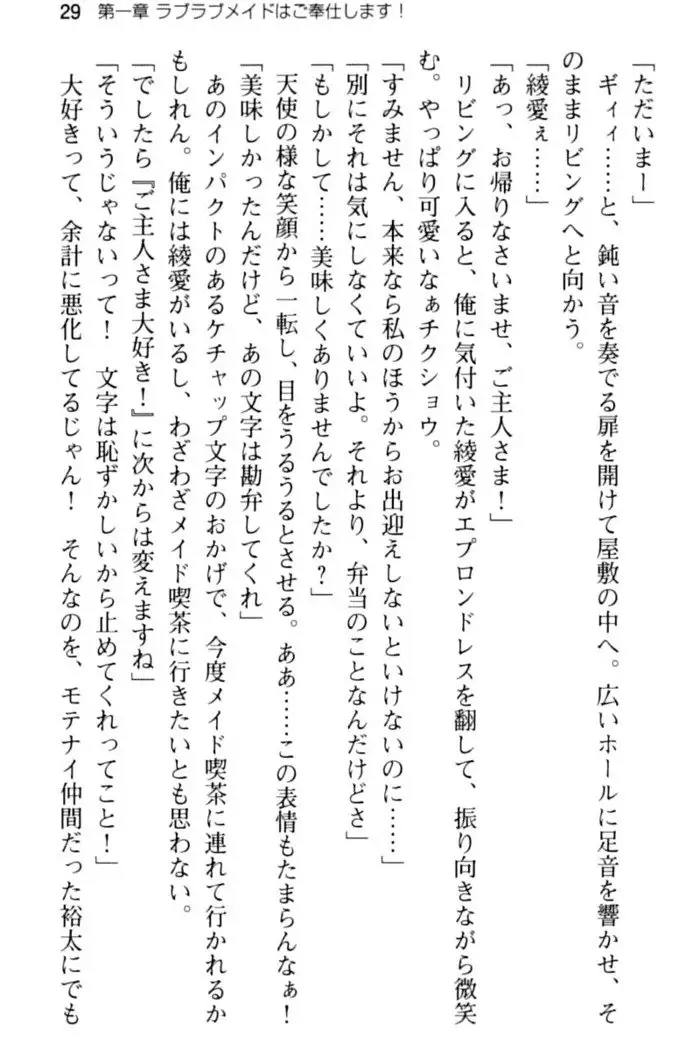 29 第一章 ラブラブメイドはご奉仕します！
「ただいまー」
　ギィィ……と、鈍い音を奏でる扉を開けて屋敷の中へ。広いホールに足音を響かせ、そ
のままリビングへと向かう。
「綾愛ぇ……」
「あっ、お帰りなさいませ、ご主人さま！」
　リビングに入ると、俺に気付いた綾愛がエプロンドレスを翻して、振り向きながら微笑
む。やっぱり可愛いなぁチクショウ。
「すみません、本来なら私のほうからお出迎えしないといけないのに……」
「別にそれは気にしなくていいよ。それより、弁当のことなんだけどさ」
「もしかして……美味しくありませんでしたか？」
　天使の様な笑顔から一転し、目をうるうるとさせる。ああ……この表情もたまらんなぁ！
「美味しかったんだけど、あの文字は勘弁してくれ」
　あのインパクトのあるケチャップ文字のおかげで、今度メイド喫茶に連れて行かれるか
もしれん。俺には綾愛がいるし、わざわざメイド喫茶に行きたいとも思わない。
「でしたら『ご主人さま大好き！』に次からは変えますね」
「そういうじゃないって！　文字は恥ずかしいから止めてくれってこと！」
　大好きって、余計に悪化してるじゃん！　そんなのを、モテナイ仲間だった裕太にでも